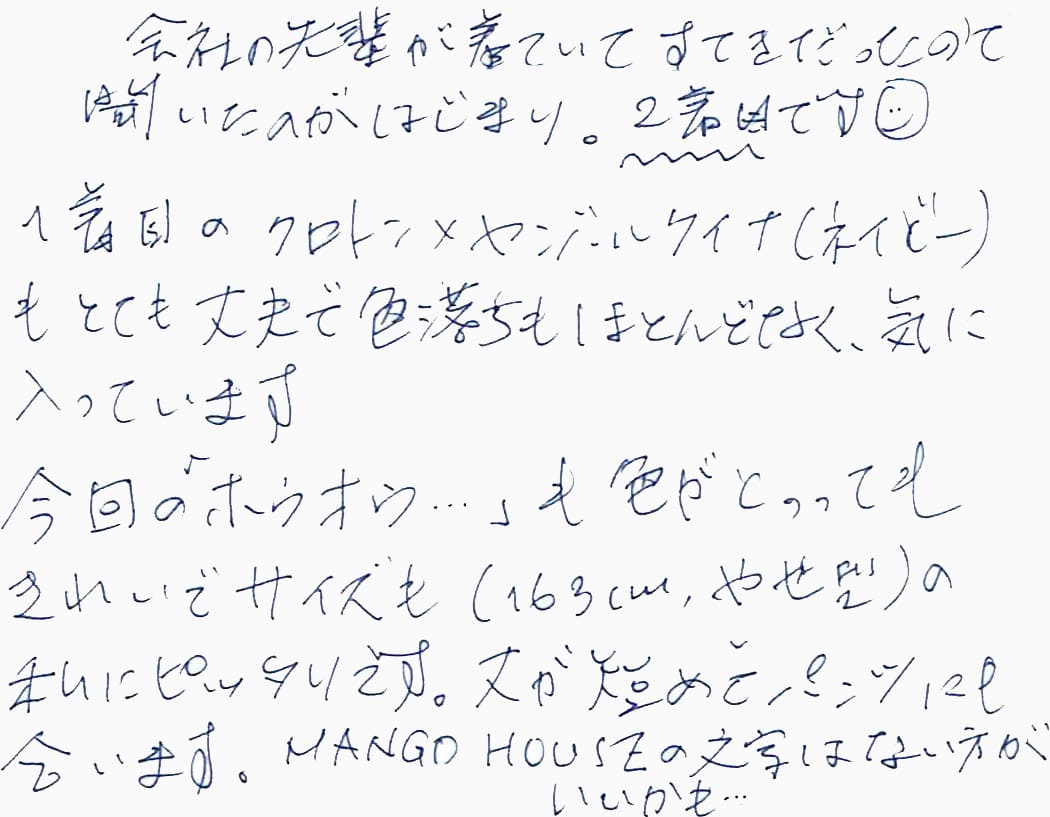 会社の先輩が着ていてすてきだったので
聞いたのがはじまり。2着目です
1着目のクロトン×ヤンバルクイナ(ネイビー)
もとても丈夫で色落ちもほとんどなく、気に
入っています
今回の「ホウオウ…」も色がとっっても
きれいでサイズも(163cm,やせ型)の
私にピッタリです。丈が短めでパンツにも
合います。MANGO HOUSEの文字はない方が
いいかも…